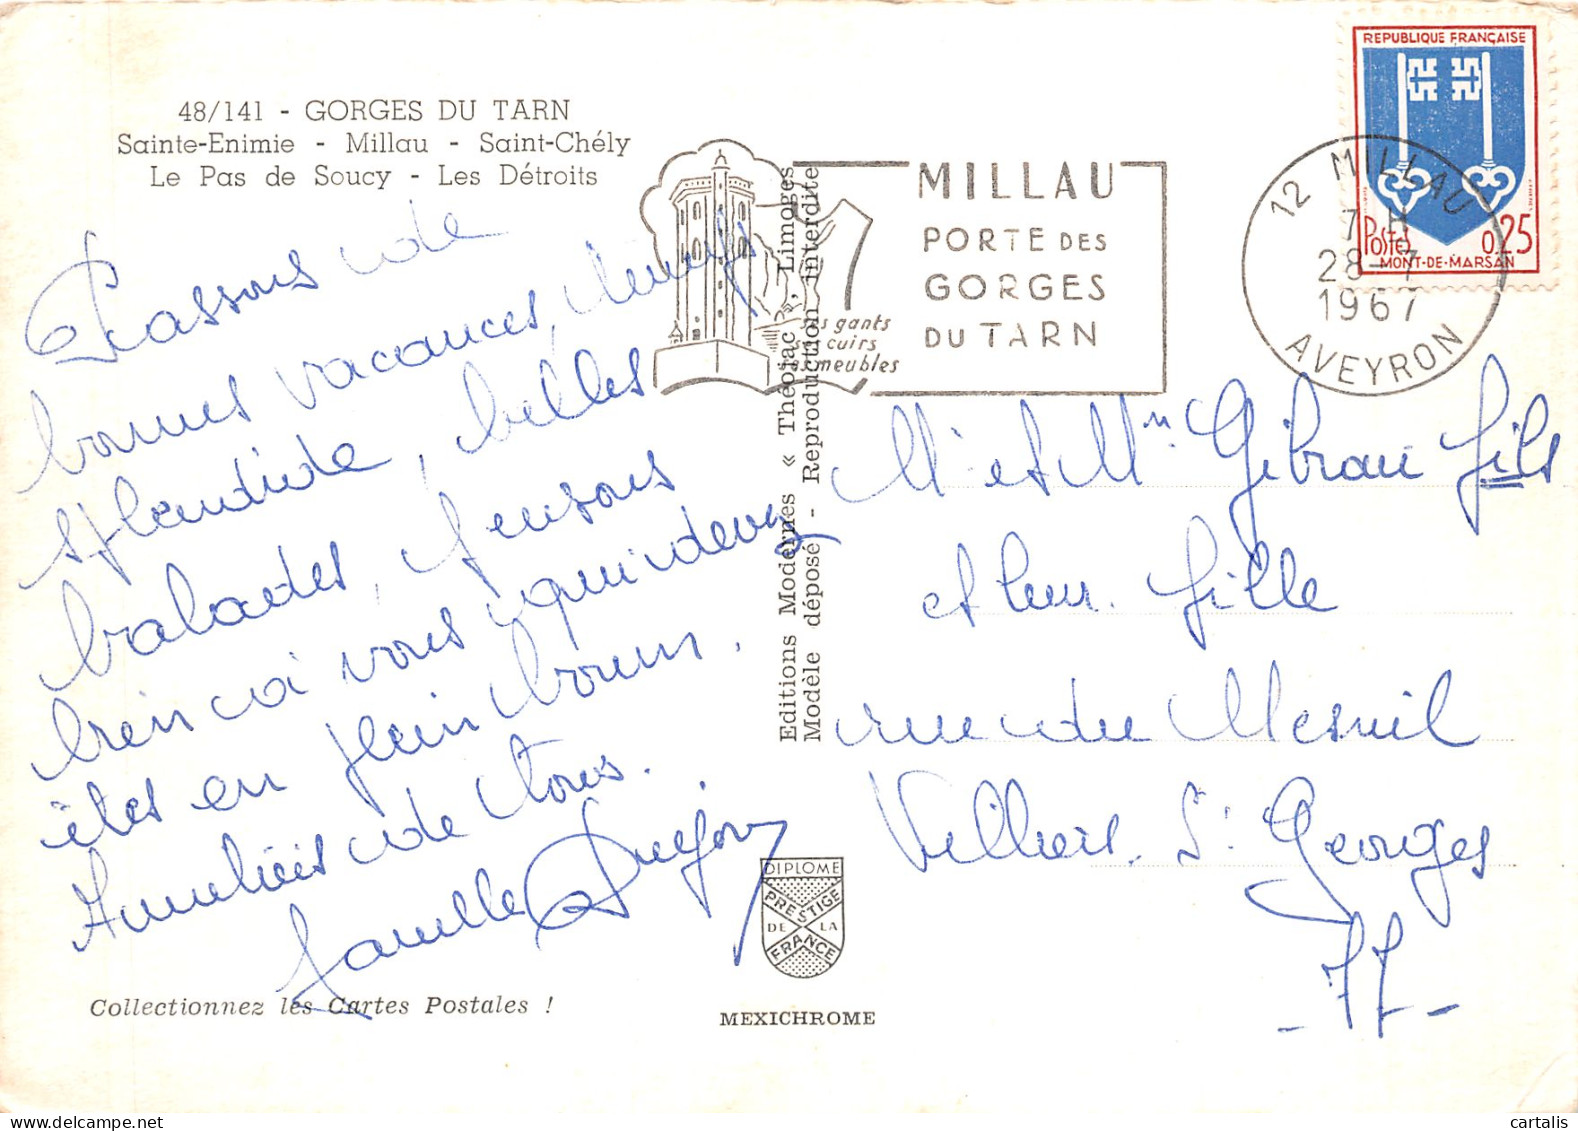 48/141 - GORGES DU TARN
Sainte-Enimie - Millau - Saint-Chély
Le Pas de Soucy - Les Détroits
Passons de
bonnes vacances, temps
splendide, belles
balades, pensons
bien à vous qui devez
êtes en plein boum.
Amitiés de tous.
Famille
Collectionnez les Cartes Postales !
Editions Modernes « Théojac », Limoges
Modèle déposé - Reproduction interdite
DIPLOME
PRESTIGE
DE LA
FRANCE
MEXICHROME
MILLAU
PORTE DES
GORGES
DU TARN
ses gants
ses cuirs
ses meubles
REPUBLIQUE FRANÇAISE
POSTES 0,25
MONT-DE-MARSAN
12 MILLAU
7 H
28-7
1967
AVEYRON
Mr et Mme Gibrau fils
et leur fille
rue du Mesnil
Villiers St Georges
- 77 -
cartalis